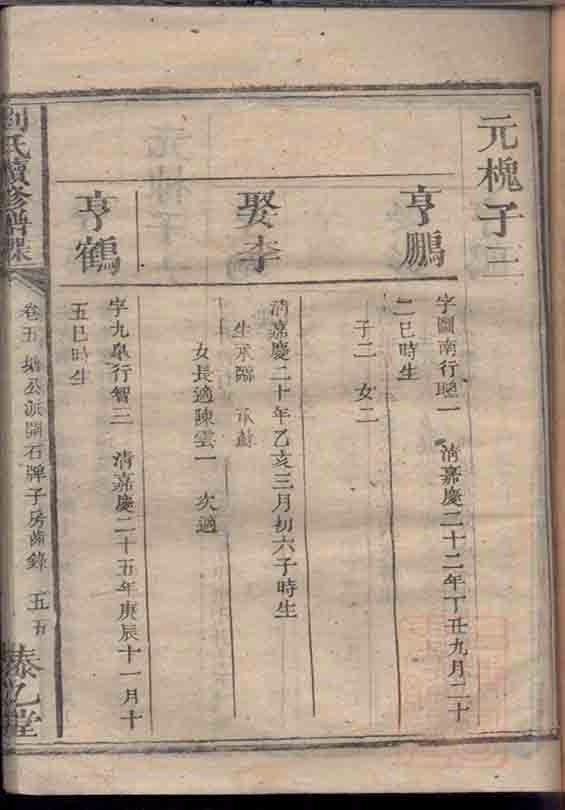 元槐子三
亨鵬
字圖南行聰一 清嘉慶二十二年丁丑九月二十
二巳時生
子二 女二
娶李
清嘉慶二十年乙亥三月初六子時生
生承 承
女長適陳雲一 次適
亨鶴
字九臯行智三 清嘉慶二十五年庚辰十一月十
五巳時生
劉氏續修譜
卷五 公派開石牌子房齒錄 五五
堂